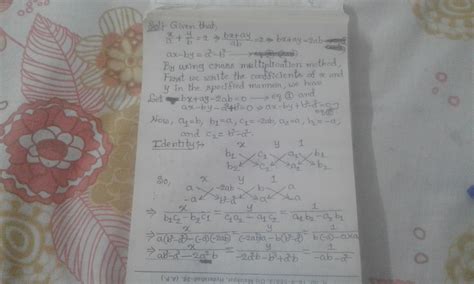 Sol: Given that,
x/a + y/b = 2 ⇒ bx+ay/ab = 2 ⇒ bx+ay=2ab
ax-by = a²-b²
By using cross multiplication method,
First we write the coefficients of x and
y in the specified manner, we have
bx+ay-2ab=0 → eq ① and
Now, a₁=b, b₁=a, c₁=-2ab, a₂=a, b₂=-a,
and c₂= b²-a².
Identity:-
x y 1
b₁ c₁ a₁ b₁
b₂ c₂ a₂ b₂
So,
x y 1
a -2ab b a
-a b²-a² a -a
⇒ x/b₁c₂-b₂c₁ = y/c₁a₂-a₁c₂ = 1/a₁b₂-a₂b₁
⇒ x/a(b²-a²)-(-a)(-2ab) = y/(-2ab)a-b(b²-a²) = 1/b(-a)-a×a